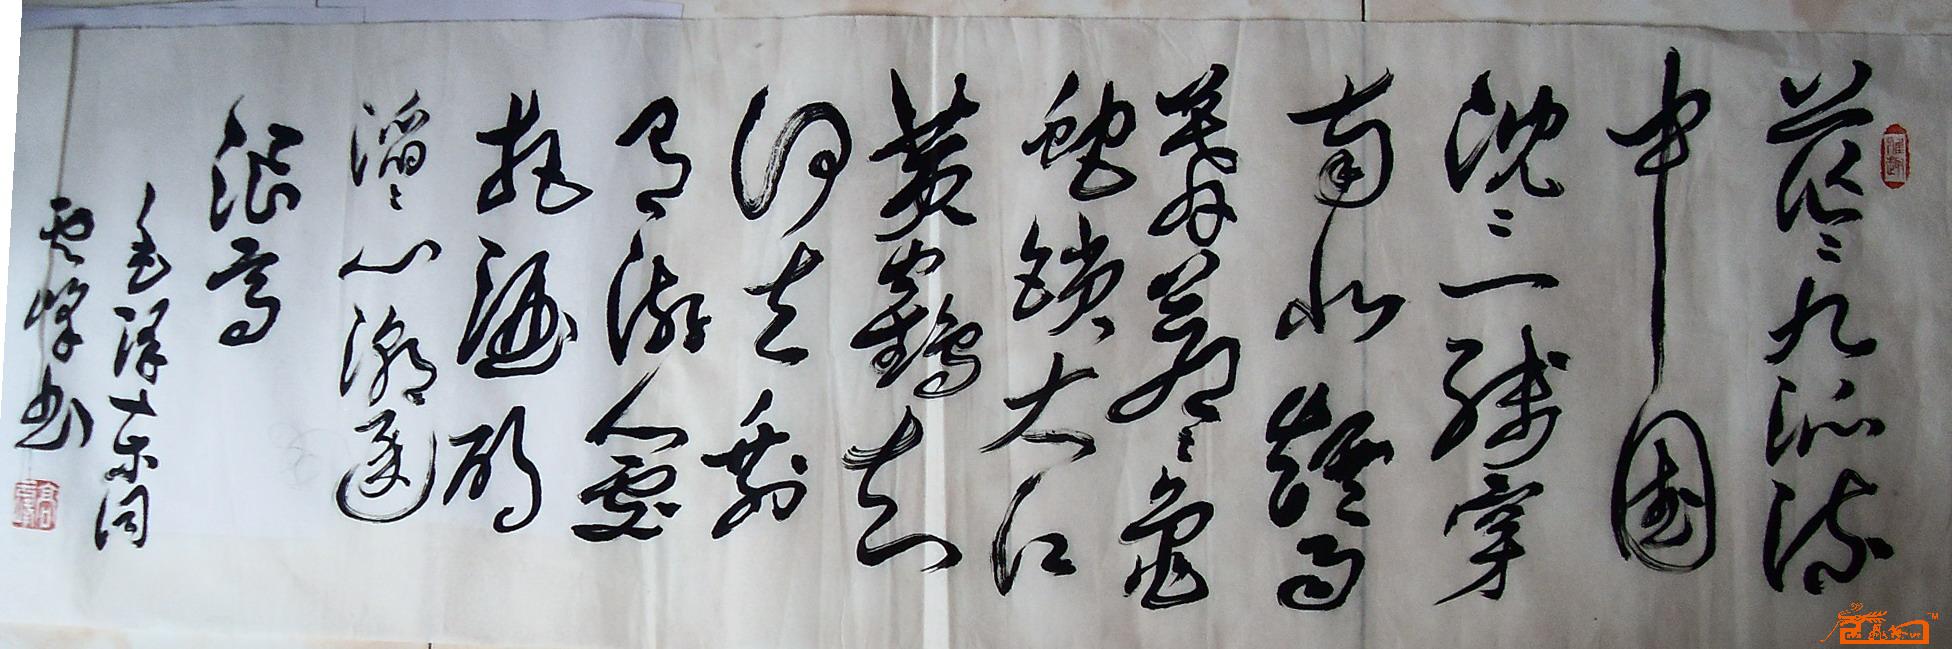 茫々九派流
中國
沈々一线穿
南北烟雨
莽苍々龟
蛇锁大江
黄鹤知
何去剩
有游人處
把酒酹
滔々心潮逐
浪高
毛泽东词
雲峰书